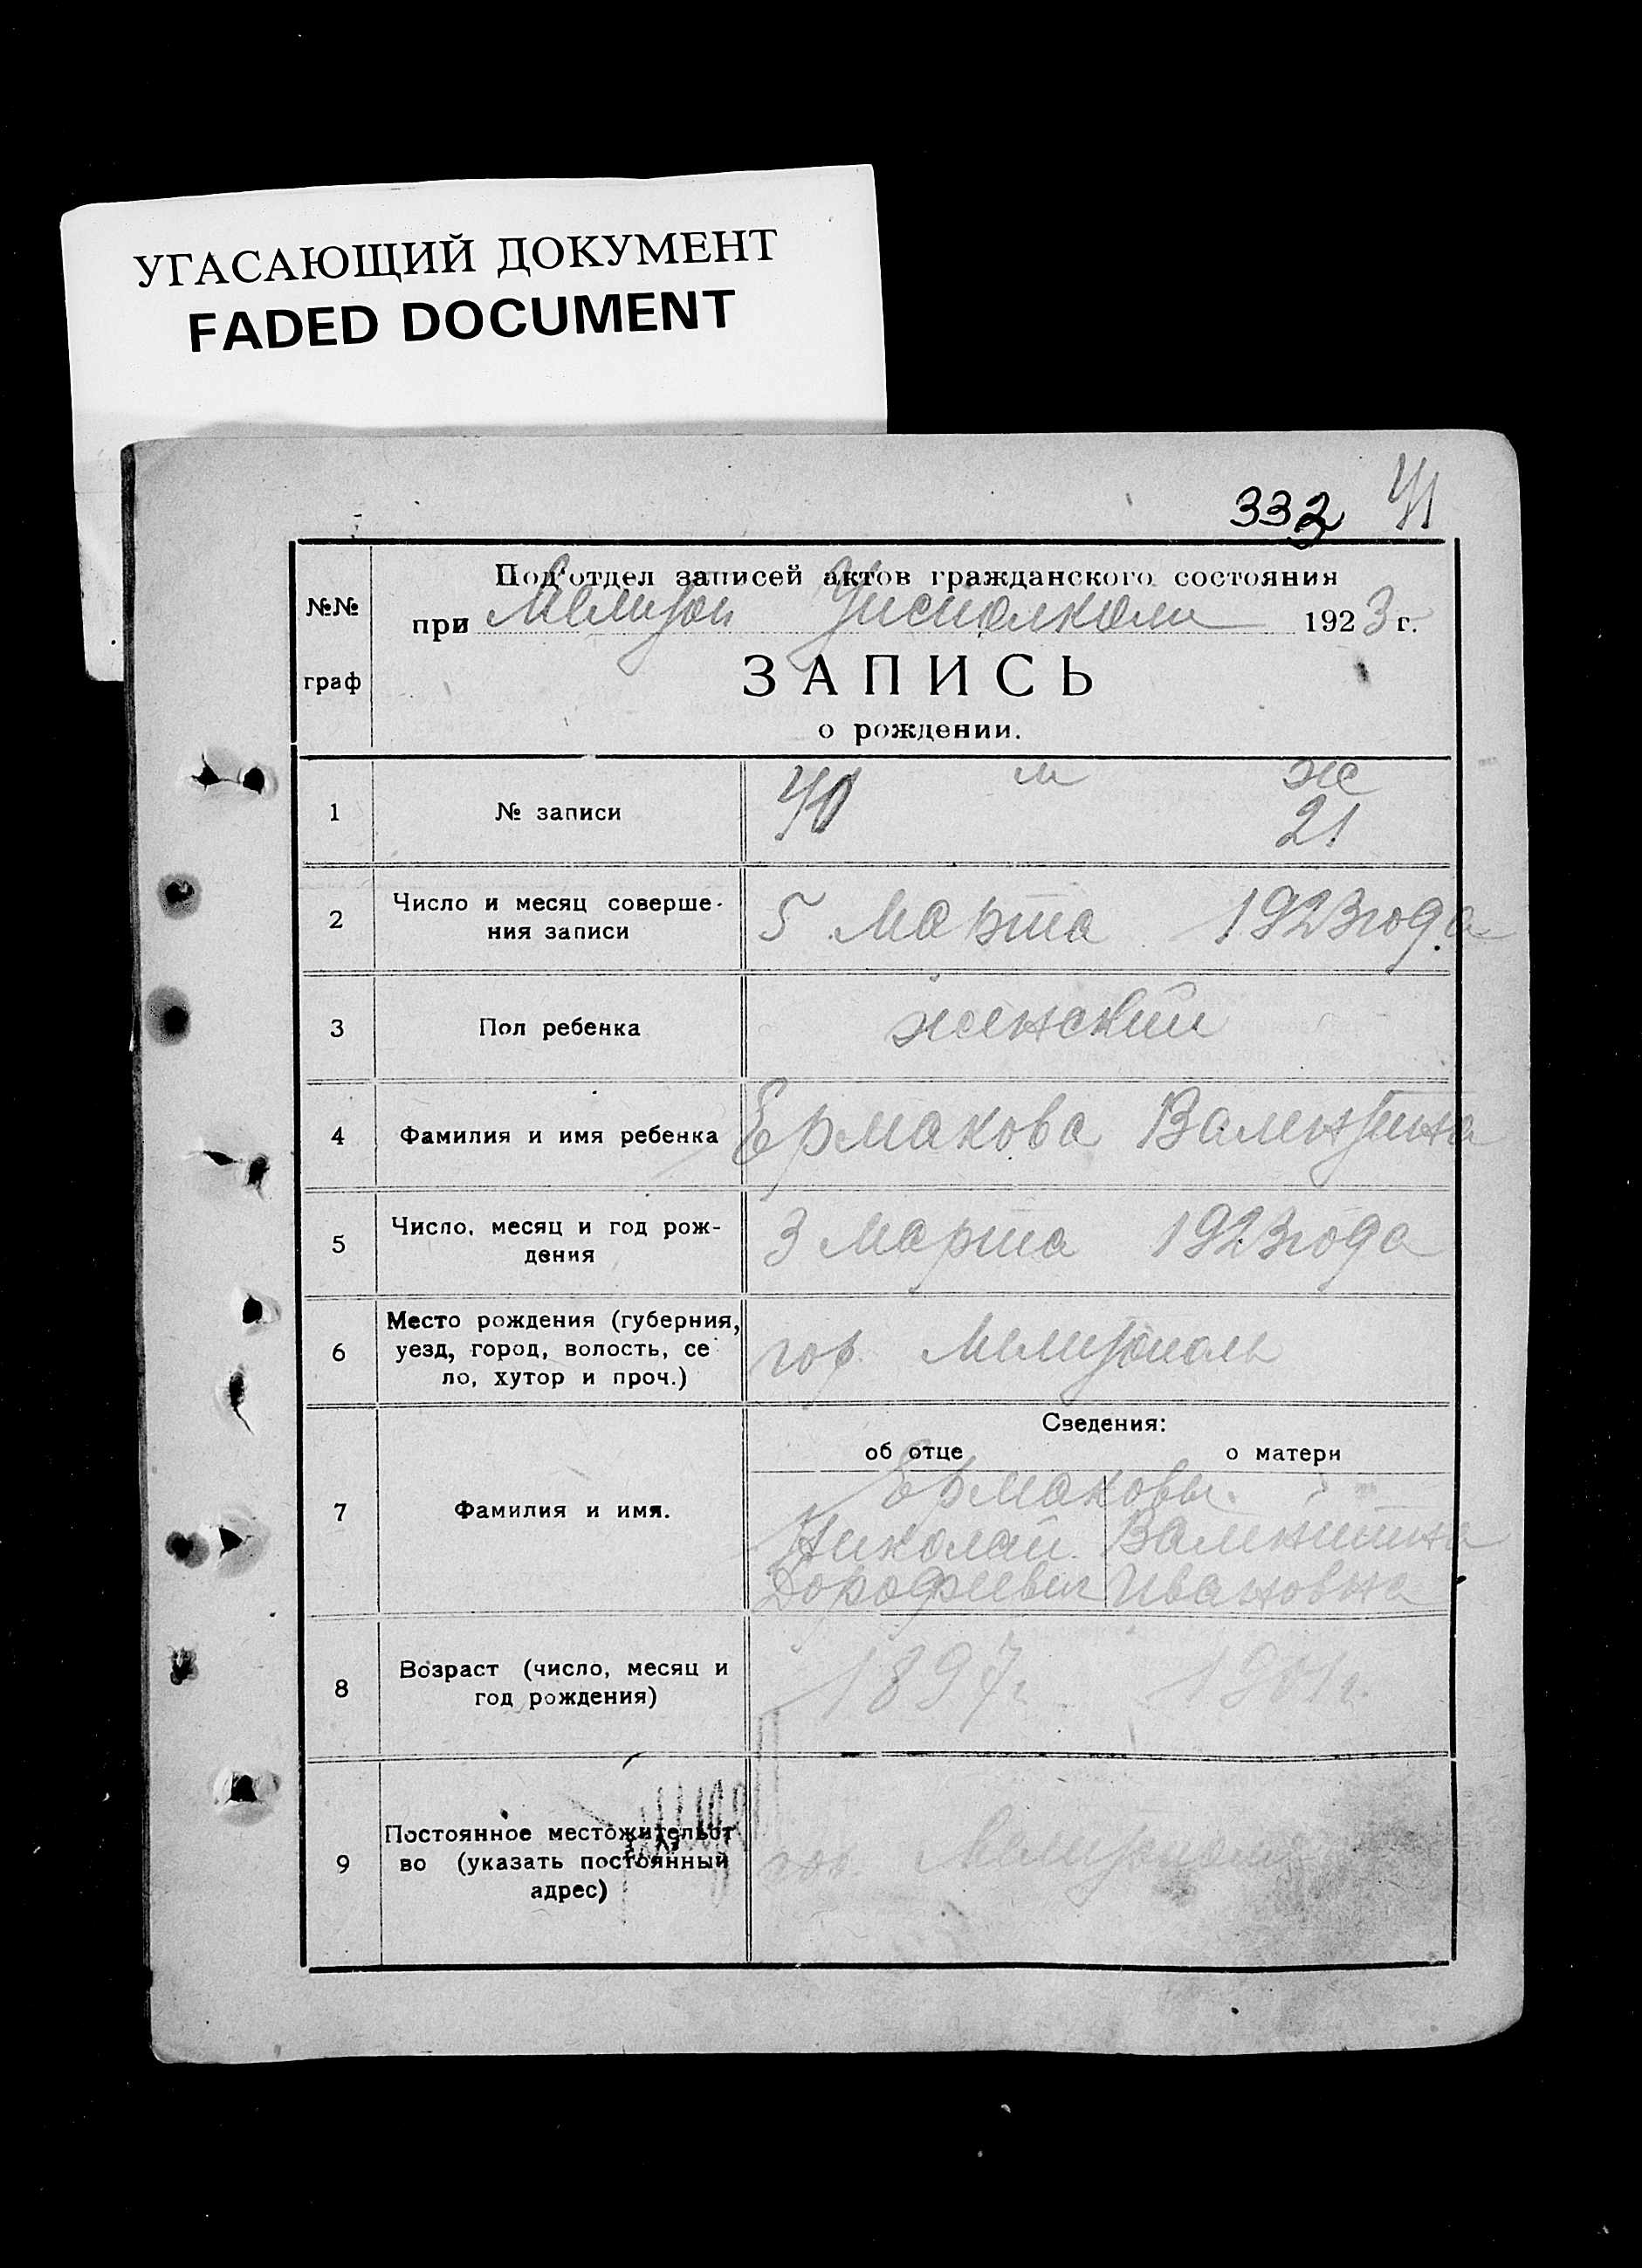 УГАСАЮЩИЙ ДОКУМЕНТ
FADED DOCUMENT
332 41
№№
граф
Под'отдел записей актов гражданского состояния
при Мелитоп Уисполкоми 1923 г.
ЗАПИСЬ
о рождении.
м ж
1 № записи 40 21
2 Число и месяц соверше-
ния записи 5 Марта 1923 года
3 Пол ребенка женский
4 Фамилия и имя ребенка Ермакова Валентина
5 Число, месяц и год рож-
дения 3 Марта 1923 года
6 Место рождения (губерния,
уезд, город, волость, се
ло, хутор и проч.) гор. Мелитополь
Сведения:
об отце о матери
7 Фамилия и имя. Ермаковы.
Николай Валентина
Дорофеевич Ивановна
8 Возраст (число, месяц и
год рождения) 1897 г.
9 Постоянное местожительст
во (указать постоянный
адрес) гор Мелитополь